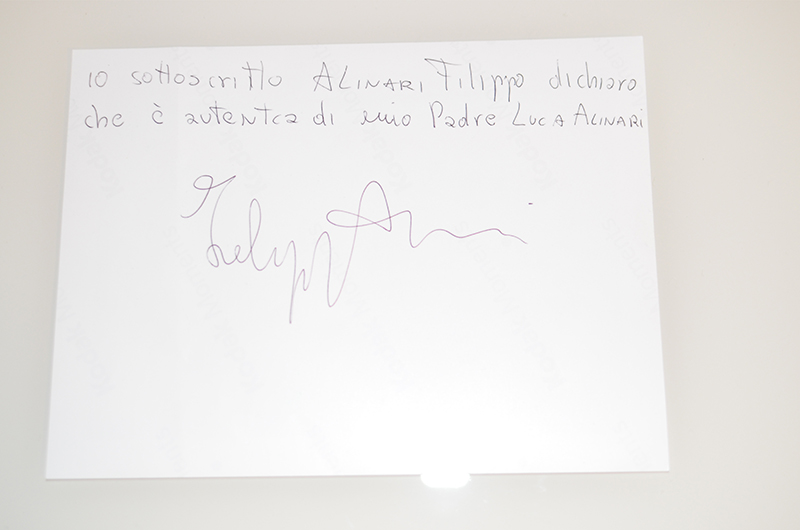 io sottoscritto ALINARI Filippo dichiaro
che è autentca di mio Padre LUCA ALINARI
Filippo Alinari